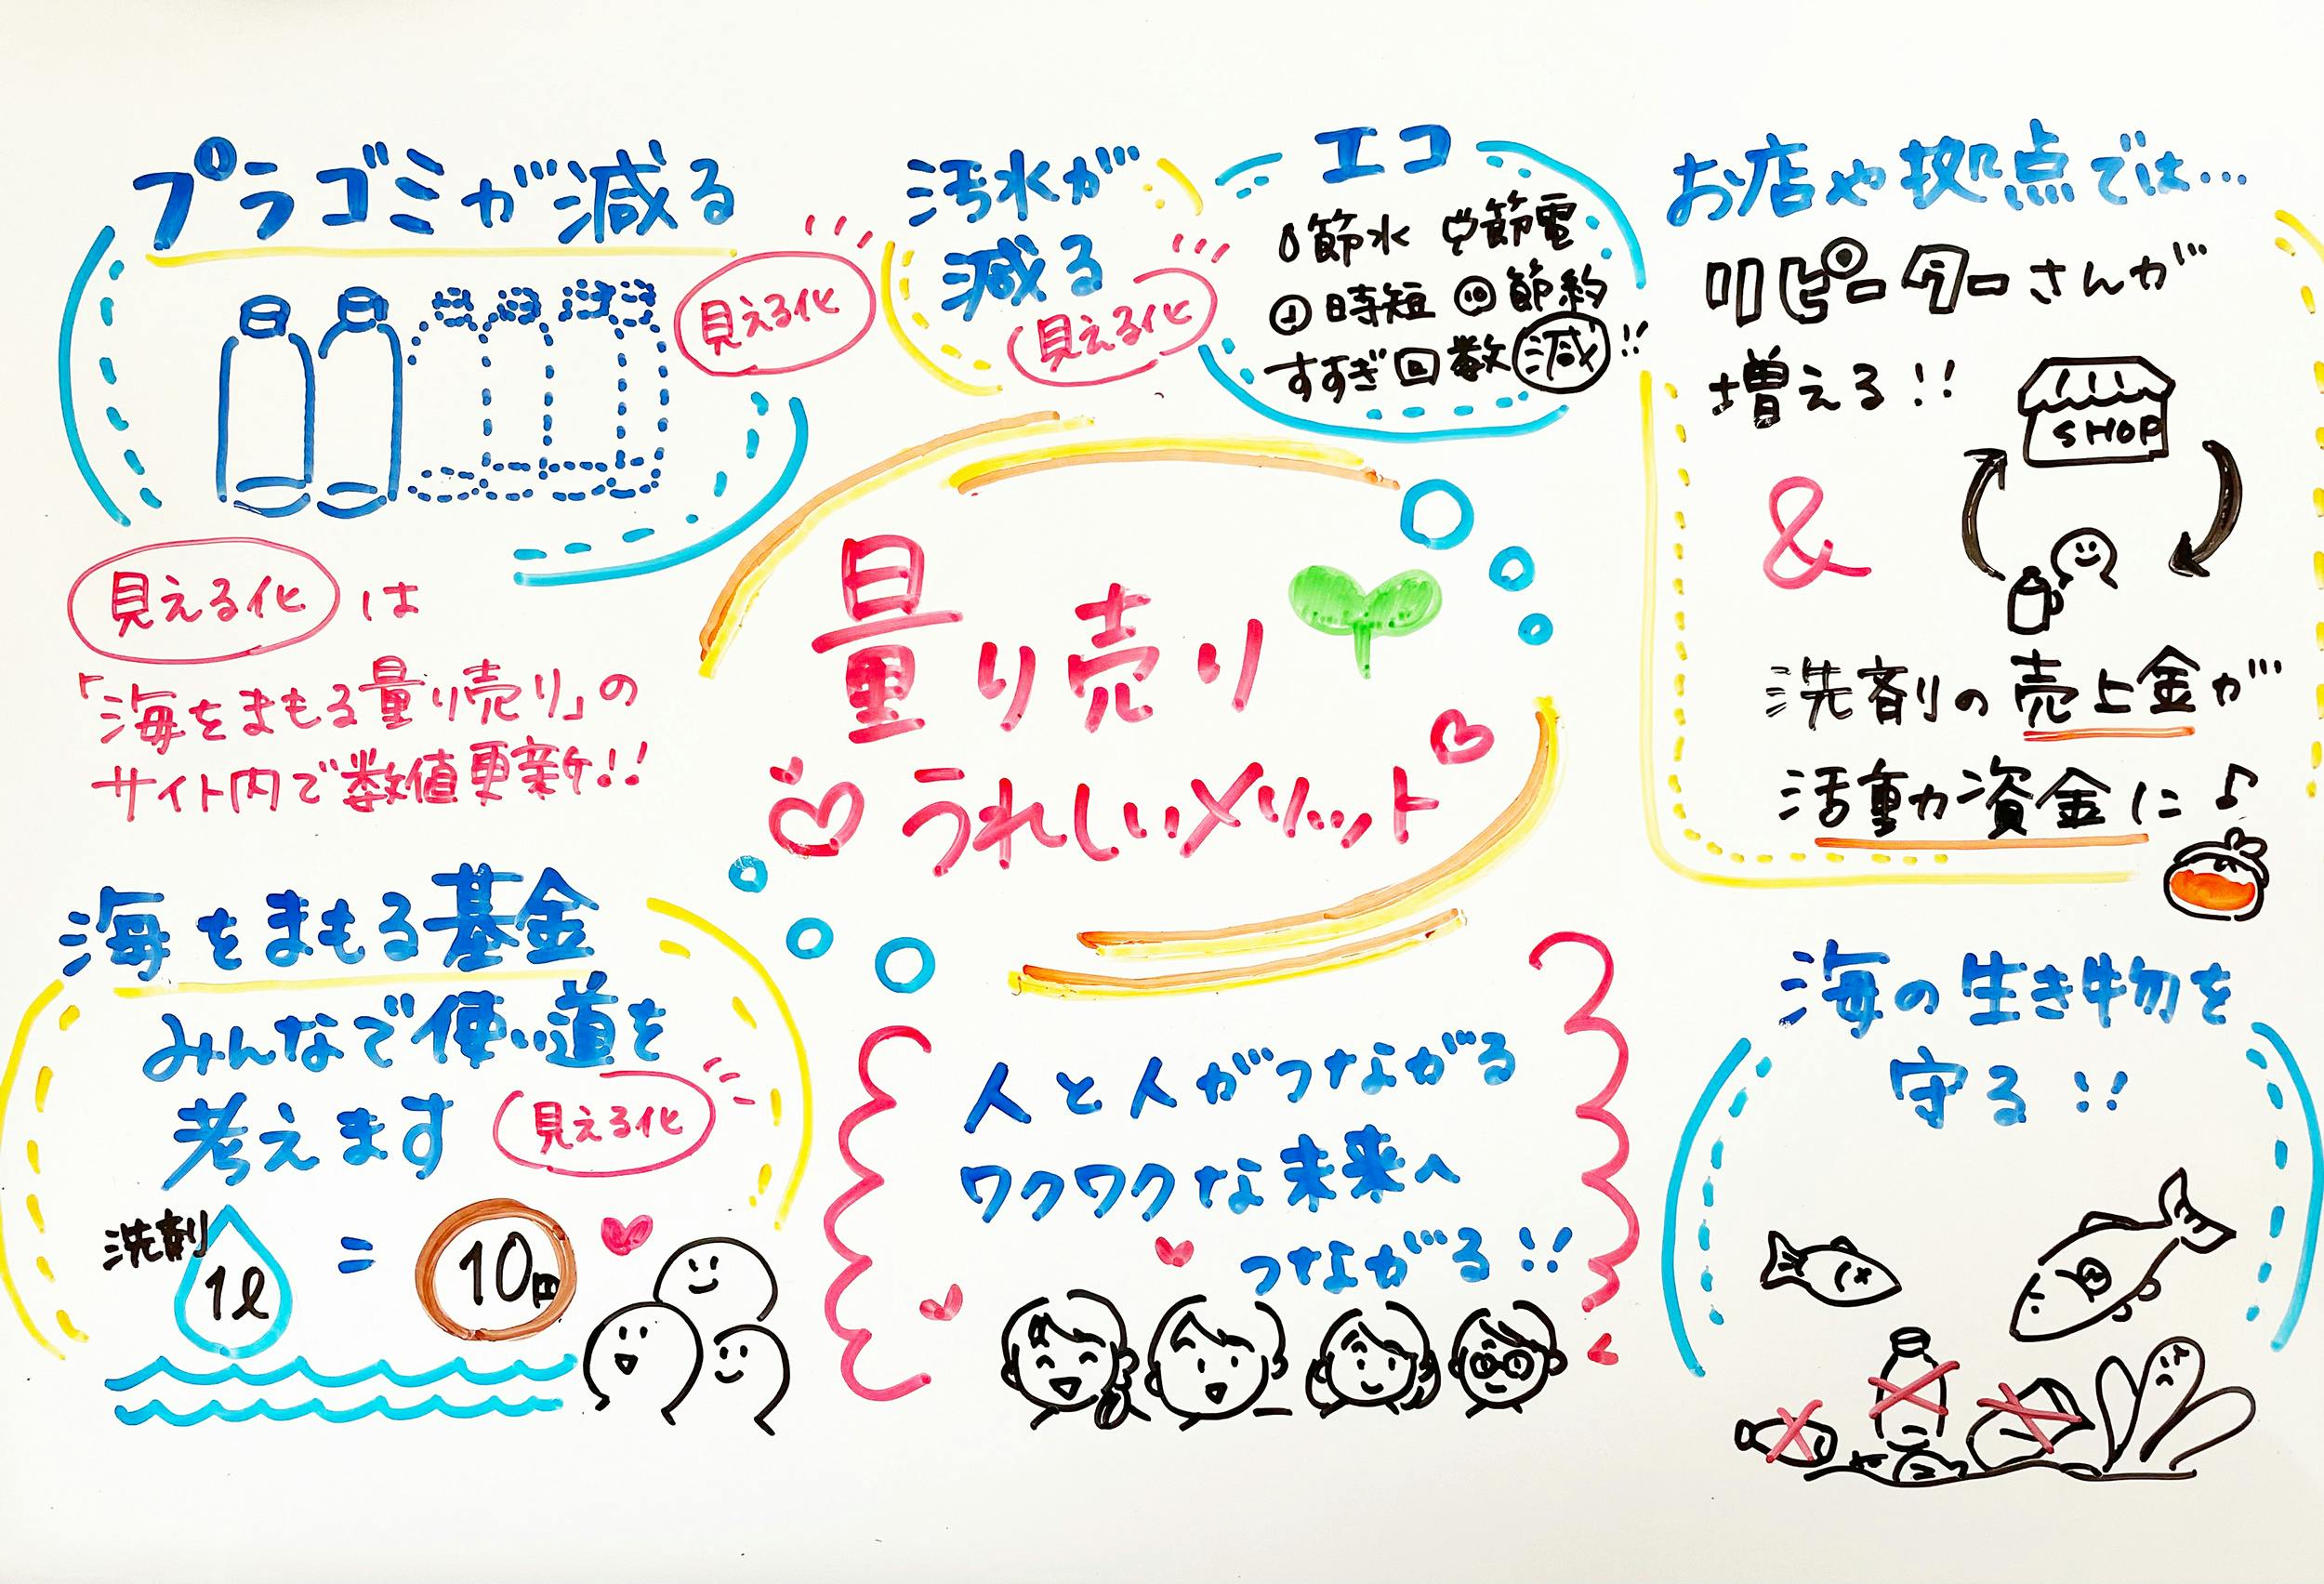 プラゴミが減る
見える化
汚水が
減る
見える化
エコ
節水 節電
時短 節約
すすぎ回数減!!
お店や拠点では…
リピーターさんが
増える!!
SHOP
&
洗剤の売上金が
活動資金に♪
量り売り
うれしいメリット
見える化は
「海をまもる量り売り」の
サイト内で数値更新!!
海をまもる基金
みんなで使い道を
考えます
見える化
洗剤
1ℓ = 10円
人と人がつながる
ワクワクな未来へ
つながる!!
海の生き物を
守る!!